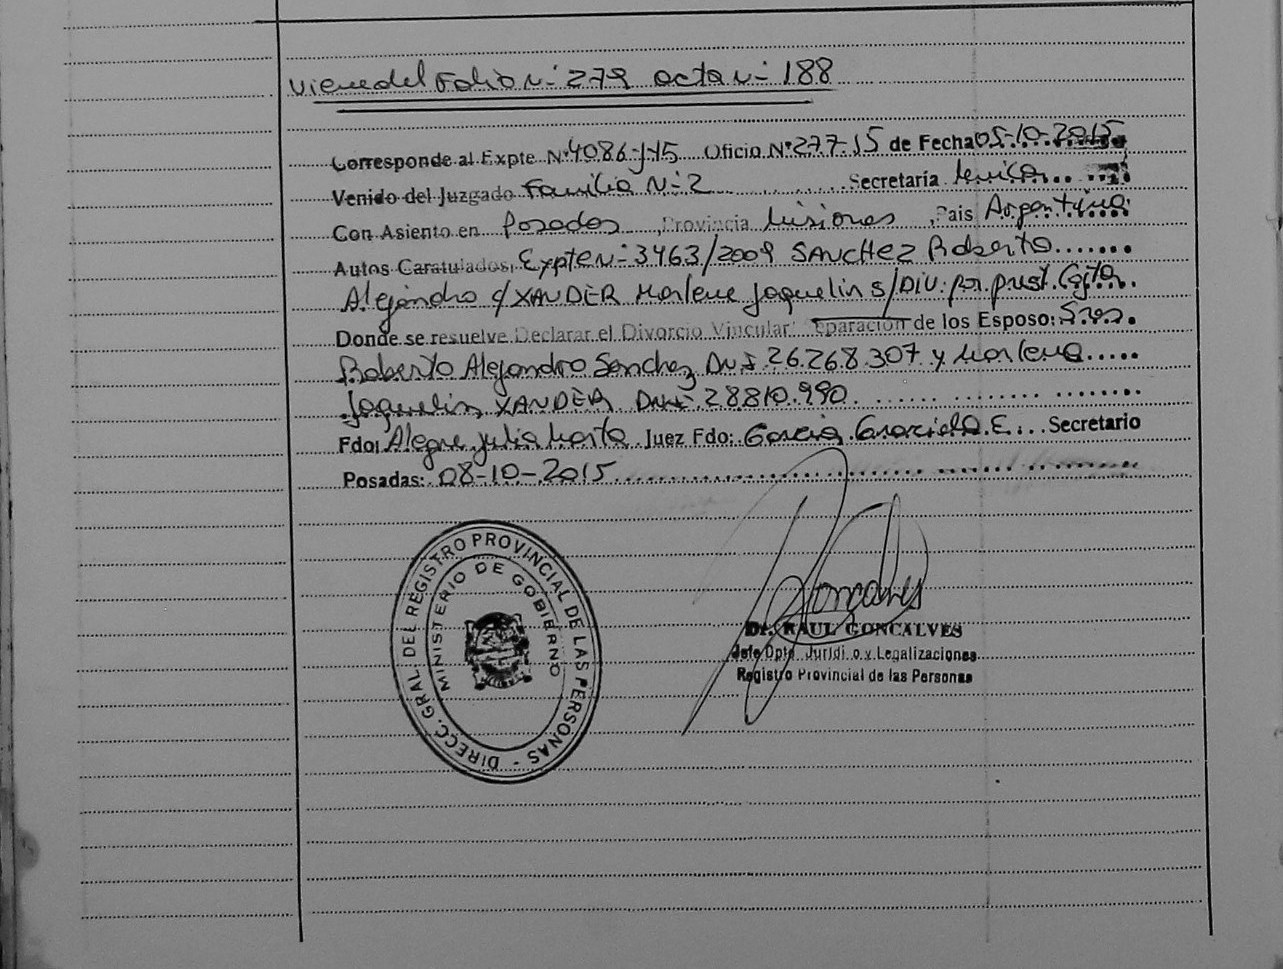 Viene del Folio N-º 279 acta N-º 188
Corresponde al Expte Nº 4086-J-15 Oficio Nº 277-15 de Fecha 05-10-2015
Venido del Juzgado Familia N-º 2 Secretaría única
Con Asiento en Posadas Provincia Misiones, Pais Argentina
Autos Caratulados, Expte N-º 3463/2009 SANCHEZ Roberto
Alejandro c/ XANDER Marlene Jaquelin s/DIV. por prest. Cjta.
Donde se resuelve Declarar el Divorcio Vincular: eparación de los Esposo: Sres.
Roberto Alejandro Sanchez DNI 26.268.307 y Marlene
Jaquelin XANDER DNI 28.810.990
Fdo: Alegre Julia Marta Juez Fdo: Garcia Graciela E. Secretario
Posadas: 08-10-2015
DIRECC. GRAL. DEL REGISTRO PROVINCIAL DE LAS PERSONAS -
MINISTERIO DE GOBIERNO
Goncalves
Dr. RAUL GONCALVES
Jefe Dpto. Jurídi o y Legalizaciones
Registro Provincial de las Personas